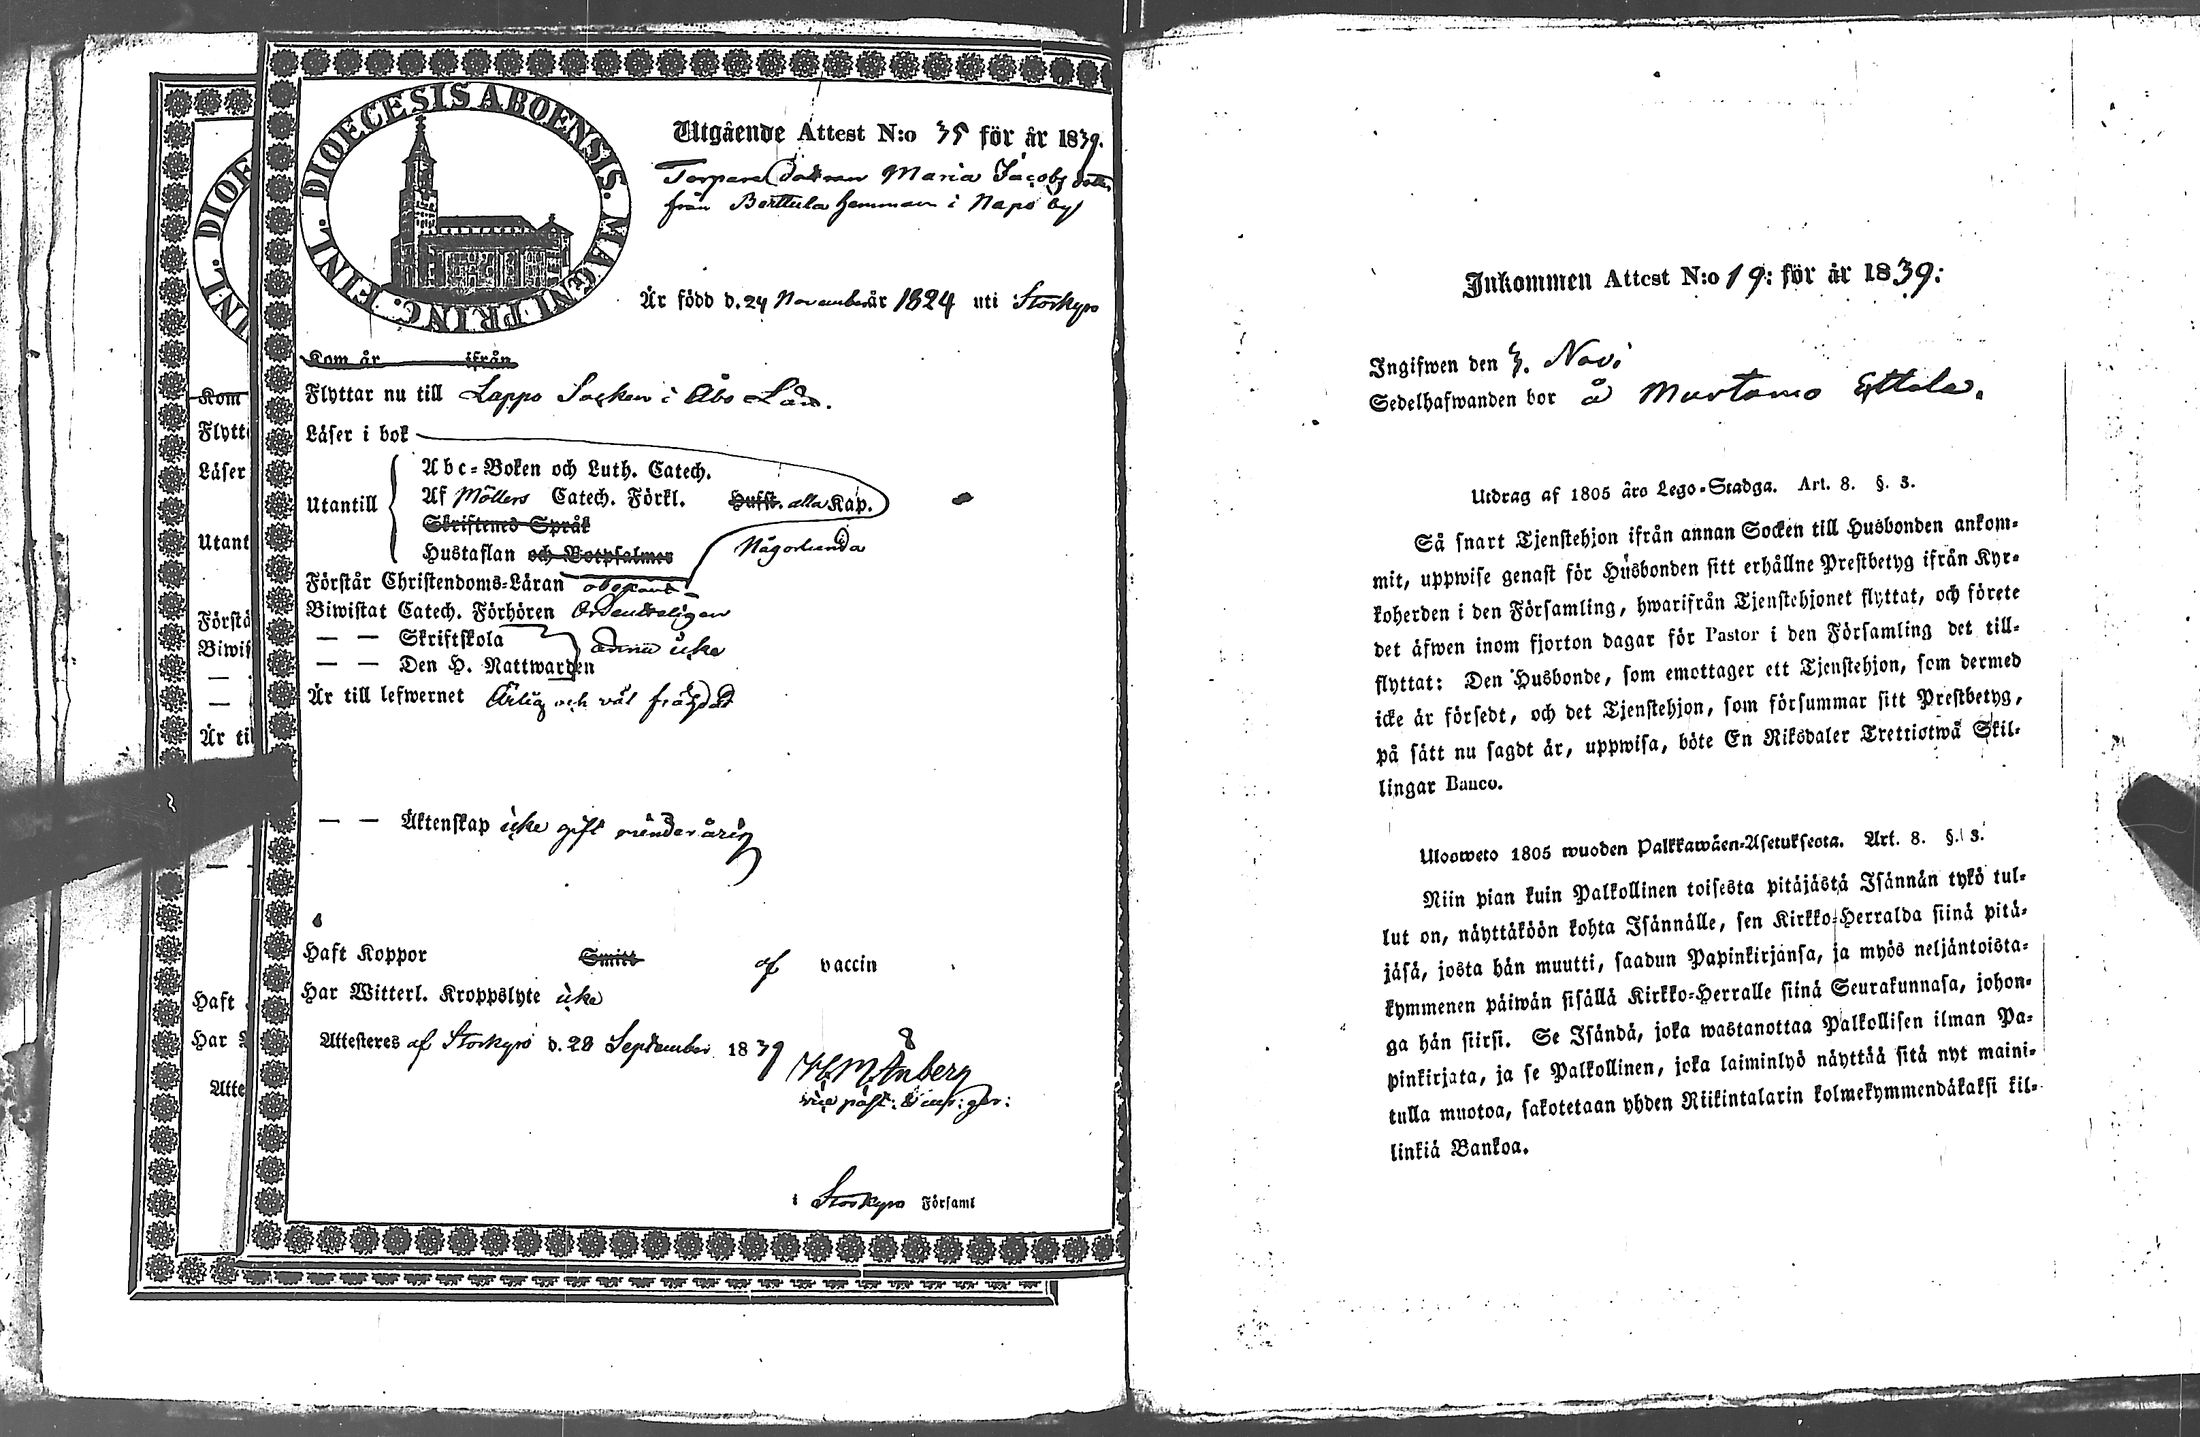 DIOECESIS ABOENSIS. MAGNI PRINC. FINL.
Utgående Attest N:o 35 för år 1839.
Torpare Dottren Maria Jacobs dotter
från Berttula hemman i Napo by
Är född d. 24 November år 1824 uti Storkyro
Kom år ifrån
Flyttar nu till Lappo Socken i Åbo Län.
Läser i bok
Abc-Boken och Luth. Catech.
Utantill
Af Möllers Catech. Förkl. Hufst. alla Kap.
Skriftenes Språk
Hustaflan och Botpsalmer
Någorlunda
Förstår Christendoms-Läran
Biwistat Catech. Förhören Ordenteligen
— — Skriftskola
ännu icke
— — Den H. Nattwarden
Är till lefwernet Ärlig och väl frägdad
— — Äktenskap icke gift minderårig
Haft Koppor Smitt af vaccin
Har Witterl. Kroppslyte icke
Attesteres af Storkyro d. 28 September 1839
vice past:
i Storkyro Församl
DIOE
INL.
Kom
Flytt
Läser
Utant
Förstå
Biwis
—
—
Är ti
—
Haft
Har
Atte
Inkommen Attest N:o 19: för år 1839:
Ingifwen den 3. Novi
Sedelhafwanden bor å Murtamo Ettala.
Utdrag af 1805 års Lego-Stadga. Art. 8. §. 3.
Så snart Tjenstehjon ifrån annan Socken till Husbonden ankom-
mit, uppwise genast för Husbonden sitt erhållne Prestbetyg ifrån Kyr-
koherden i den Församling, hwarifrån Tjenstehjonet flyttat, och förete
det äfwen inom fjorton dagar för Pastor i den Församling det till-
flyttat: Den Husbonde, som emottager ett Tjenstehjon, som dermed
icke är försedt, och det Tjenstehjon, som försummar sitt Prestbetyg,
på sätt nu sagdt är, uppwisa, böte En Riksdaler Trettiotwå Skil-
lingar Banco.
Ulosweto 1805 wuoden Palkkawäen-Asetuksesta. Art. 8. §. 3.
Niin pian kuin Palkollinen toisesta pitäjästä Isännän tykö tul-
lut on, näyttäköön kohta Isännälle, sen Kirkko-Herralda siinä pitä-
jäsä, josta hän muutti, saadun Papinkirjansa, ja myös neljäntoista-
kymmenen päiwän sisällä Kirkko-Herralle siinä Seurakunnasa, johon-
ga hän siirsi. Se Isändä, joka wastanottaa Palkollisen ilman Pa-
pinkirjata, ja se Palkollinen, joka laiminlyö näyttää sitä nyt maini-
tulla muotoa, sakotetaan yhden Riikintalarin kolmekymmendäkaksi kil-
linkiä Bankoa.